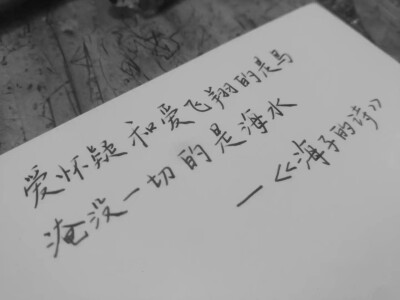 爱怀疑和爱飞翔的是鸟
淹没一切的是海水
—《海子的诗》